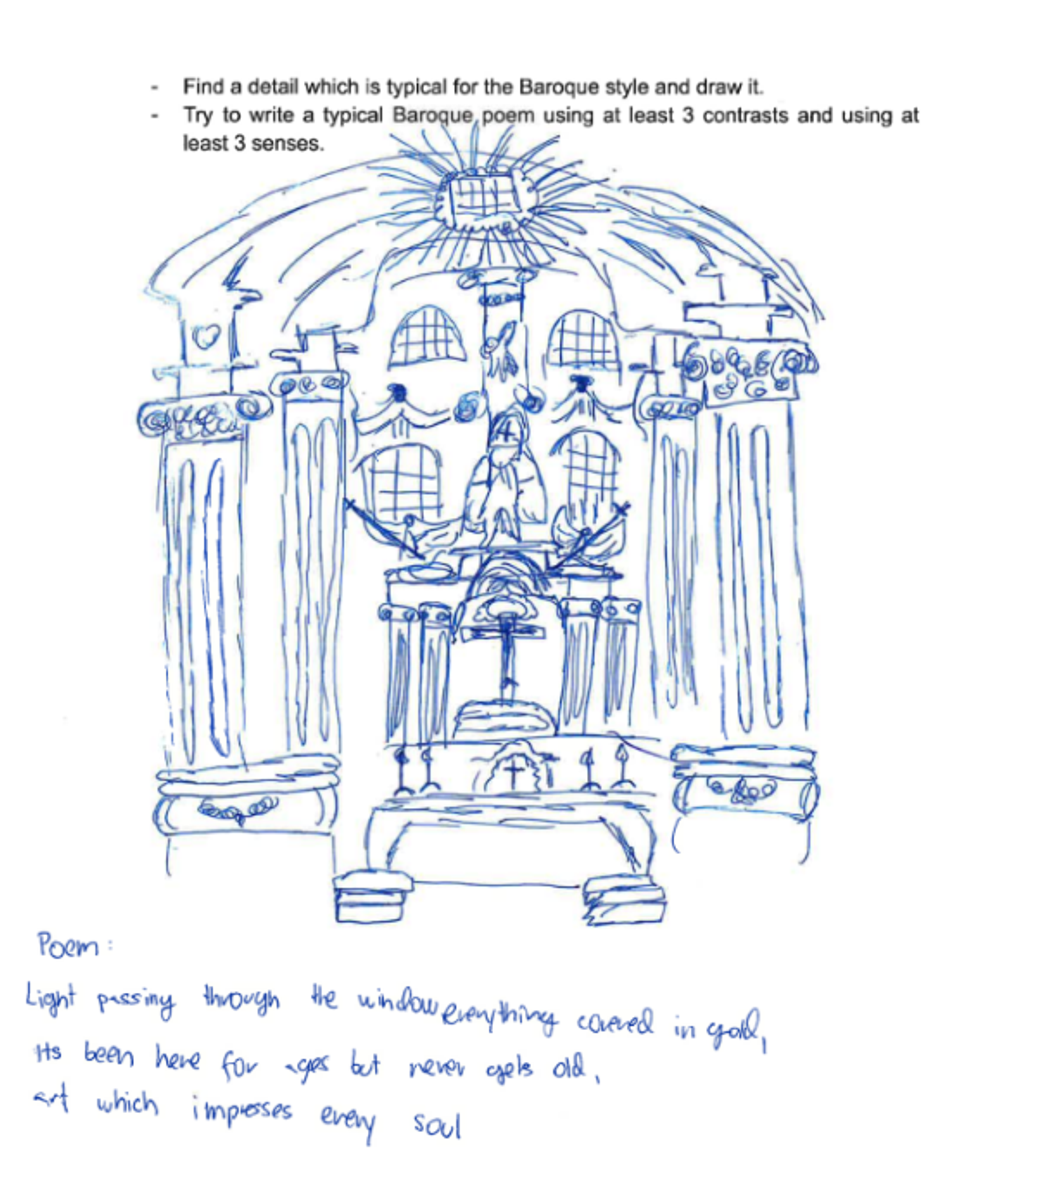 - Find a detail which is typical for the Baroque style and draw it.
- Try to write a typical Baroque poem using at least 3 contrasts and using at
least 3 senses.
Poem:
Light passing through the window everything covered in gold,
Its been here for ages but never gets old,
art which impresses every soul